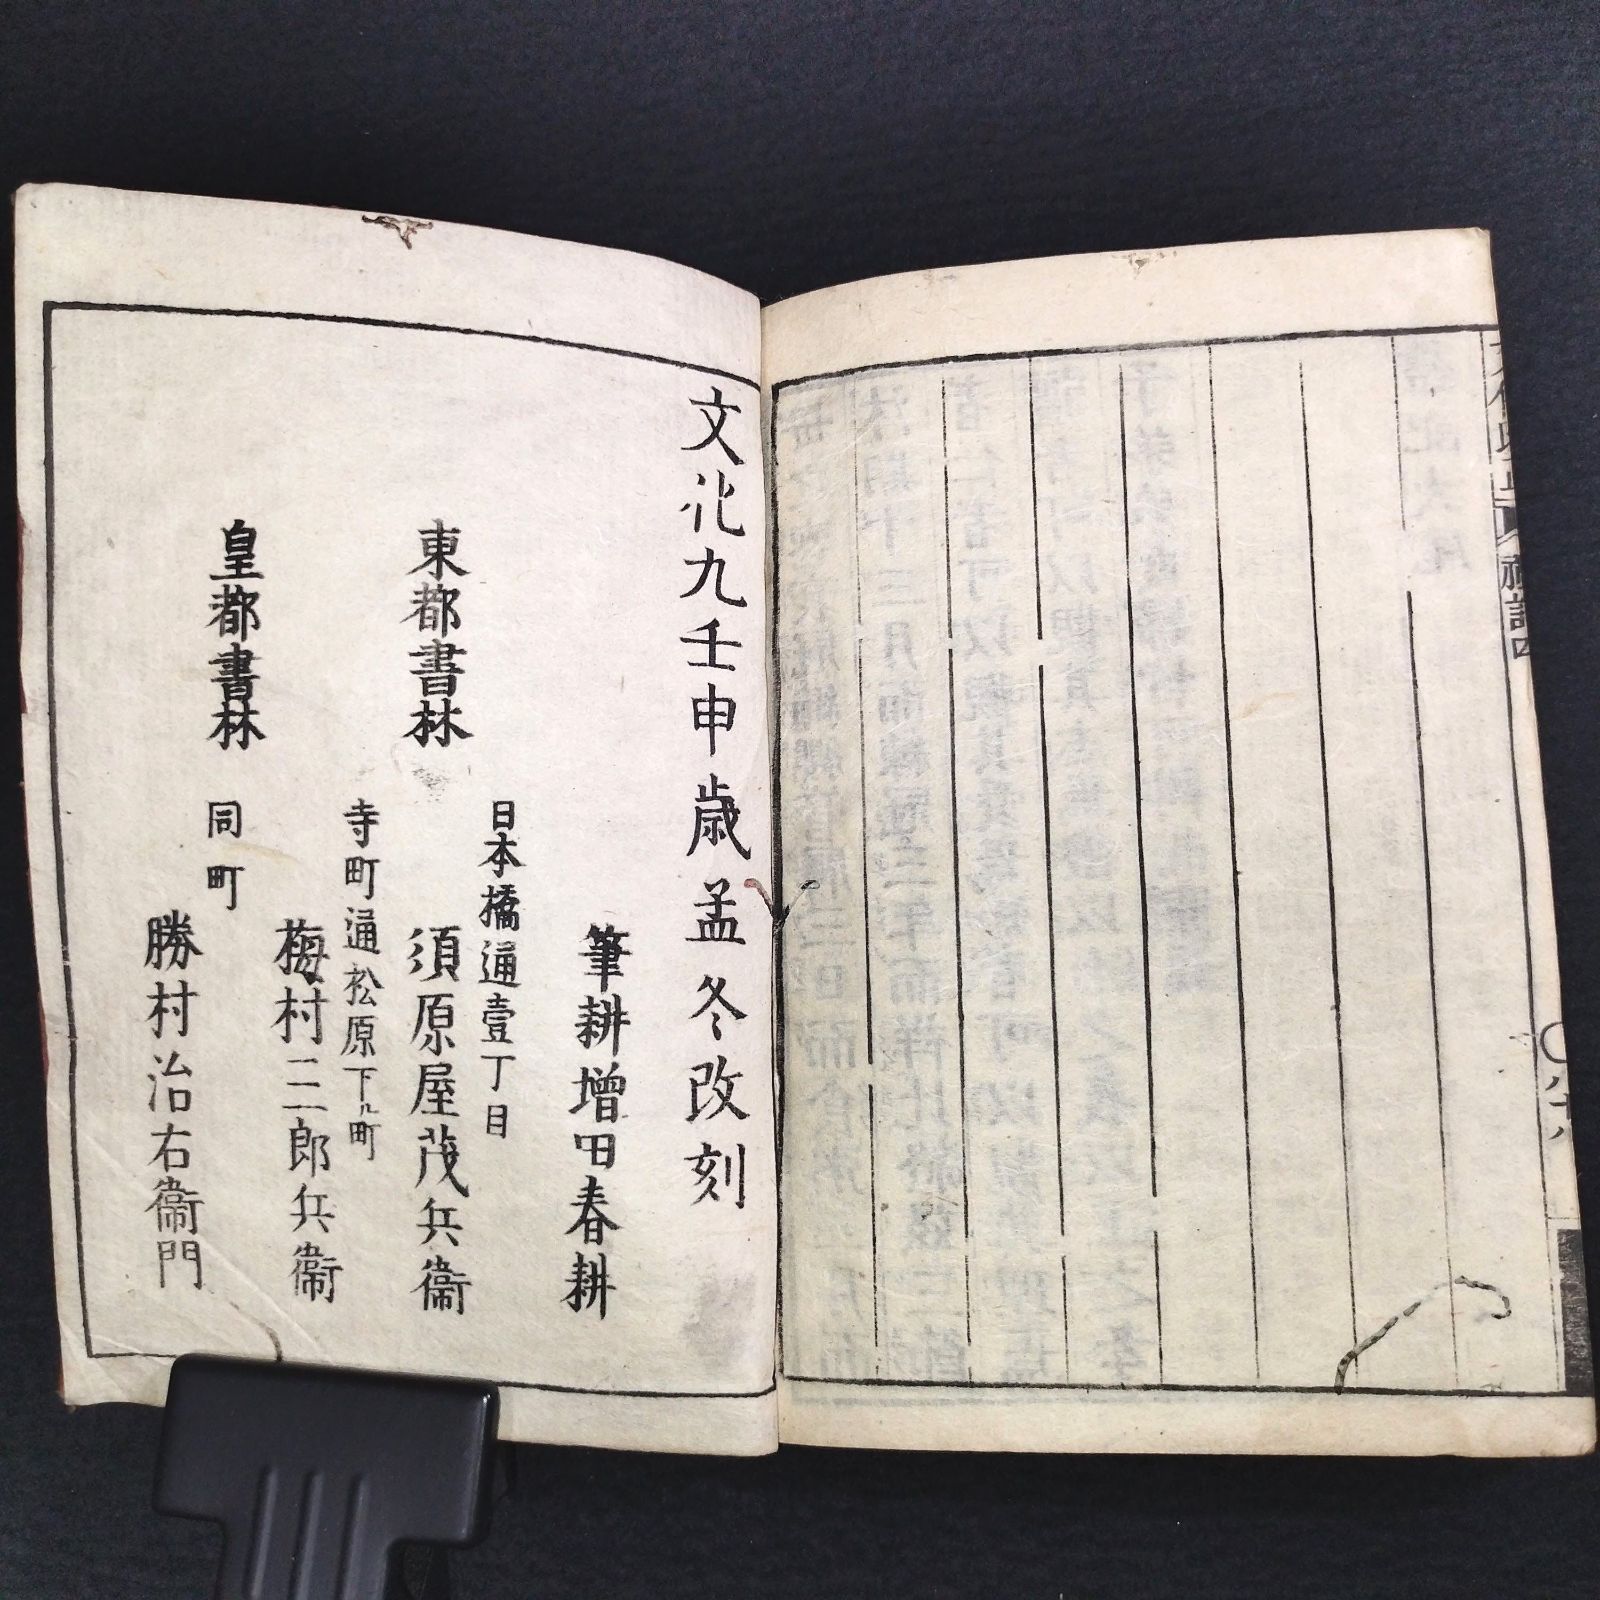 禮記四
八十八
文化九壬申歳孟冬改刻
筆耕増田春耕
東都書林
日本橋通壹丁目
須原屋茂兵衞
皇都書林
寺町通松原下ル町
梅村三郎兵衞
同町
勝村治右衞門